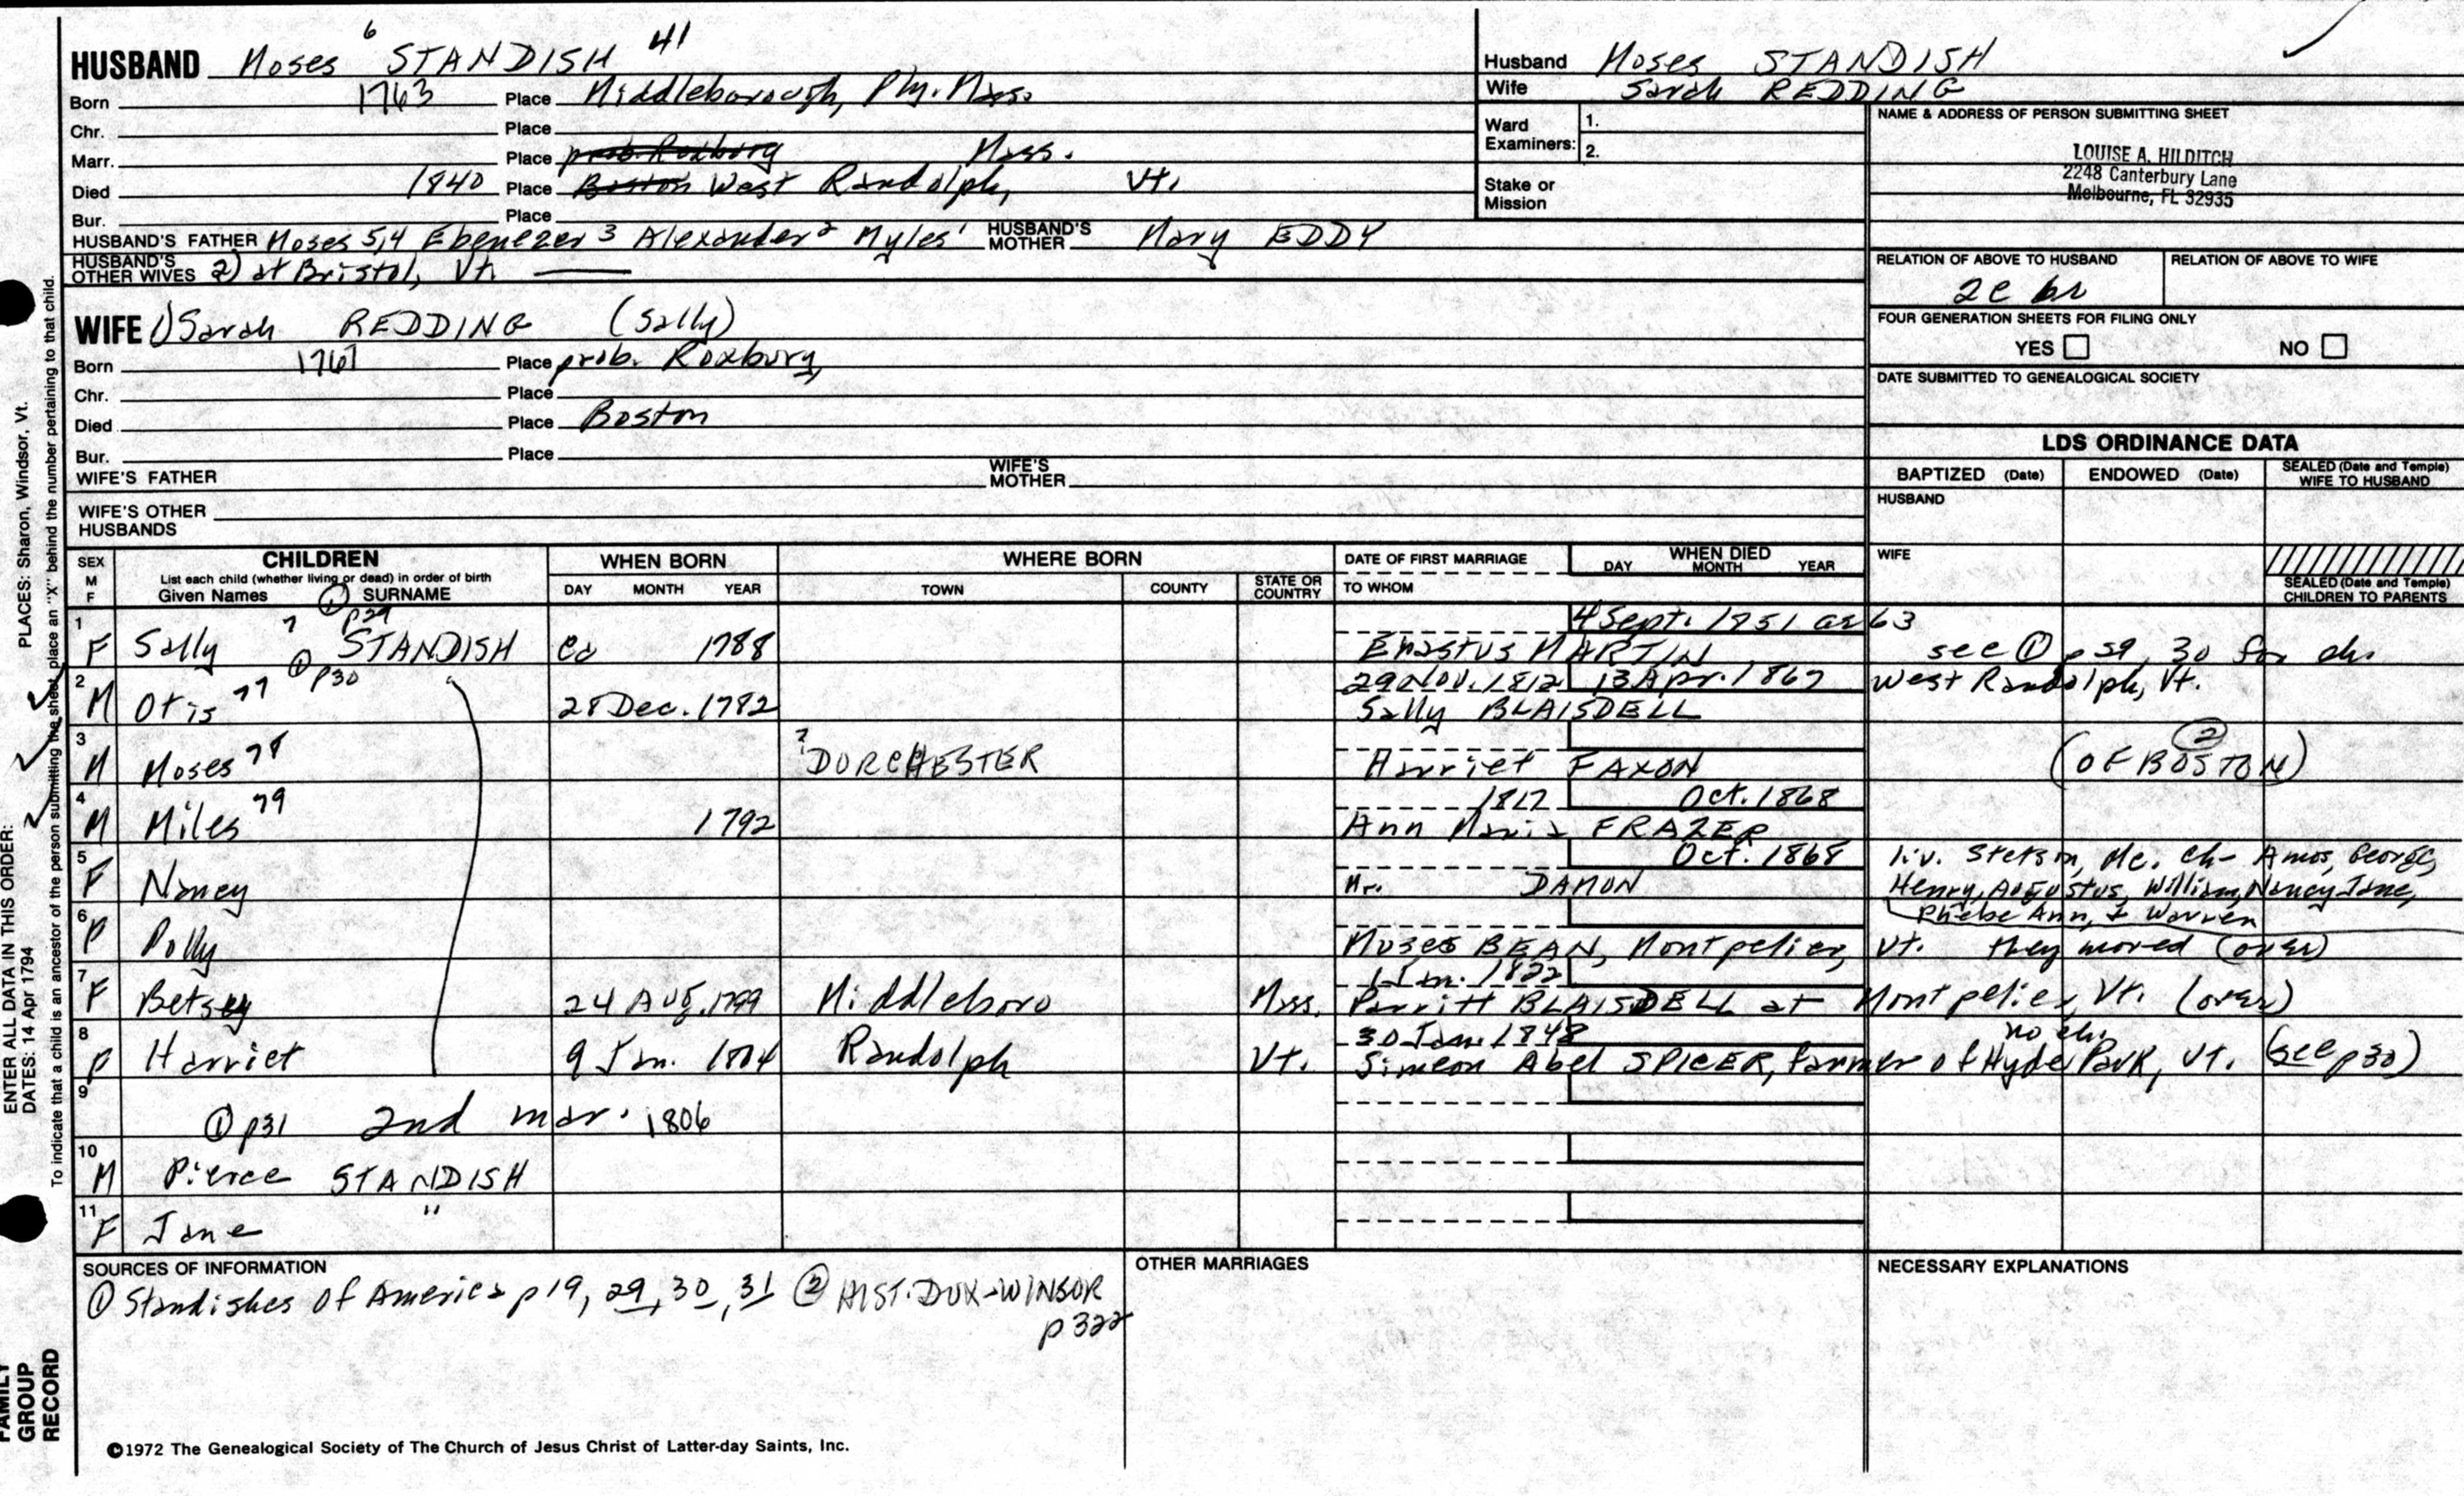 HUSBAND Moses 6 STANDISH 41
Born 1763 Place Middleborough, Ply. Mass.
Chr. Place
Marr. Place prob. Roxbury Mass.
Died 1840 Place Boston West Randolph, Vt.
Bur. Place
HUSBAND'S FATHER Moses 5,4 Ebenezer 3 Alexander 2 Myles 1 HUSBAND'S MOTHER Mary EDDY
HUSBAND'S OTHER WIVES 2) at Bristol, Vt.
WIFE 1) Sarah REDDING (Sally)
Born 1767 Place prob. Roxbury,
Chr. Place
Died Place Boston
Bur. Place
WIFE'S FATHER WIFE'S MOTHER
WIFE'S OTHER HUSBANDS
Husband Moses STANDISH
Wife Sarah REDDING
Ward Examiners: 1.
2.
Stake or Mission
NAME & ADDRESS OF PERSON SUBMITTING SHEET
LOUISE A. HILDITCH
2248 Canterbury Lane
Melbourne, FL 32935
RELATION OF ABOVE TO HUSBAND RELATION OF ABOVE TO WIFE
FOUR GENERATION SHEETS FOR FILING ONLY
YES NO
DATE SUBMITTED TO GENEALOGICAL SOCIETY
LDS ORDINANCE DATA
BAPTIZED (Date) ENDOWED (Date) SEALED (Date and Temple) WIFE TO HUSBAND
HUSBAND
WIFE
SEALED (Date and Temple) CHILDREN TO PARENTS
SEX M F
CHILDREN
List each child (whether living or dead) in order of birth
Given Names SURNAME
WHEN BORN
DAY MONTH YEAR
WHERE BORN
TOWN COUNTY STATE OR COUNTRY
DATE OF FIRST MARRIAGE
TO WHOM
WHEN DIED
DAY MONTH YEAR
① p29
1 4 Sept. 1851 ae 63
F Sally 7 STANDISH ca 1788 Erastus MARTIN see ① p 29, 30 for ch.
2 ① p30 29 Nov. 1812 13 Apr. 1867 West Randolph, Vt.
M Otis 77 28 Dec. 1782 Sally BLAISDELL
3 ?
M Moses 78 DORCHESTER Harriet FAXON (OF BOSTON) ②
4 1817 Oct. 1868
M Miles 79 1792 Ann Maria FRAZER
5 Oct. 1868 liv. Stetson, Me. ch- Amos, George,
F Nancy Mr. DAMON Henry, Augustus, William, Nancy Jane,
6 Phebe Ann, & Warren
F Polly Moses BEAN, Montpelier, Vt. they moved (over)
7 1 Jan. 1822
F Betsey 24 Aug. 1799 Middleboro Mass. Parritt BLAISDELL at Montpelier, Vt. (over)
8 30 Jan. 1848 no ch.
F Harriet 9 Jan. 1804 Randolph Vt. Simeon Abel SPICER, farmer of Hyde Park, Vt. (see p30)
9
① p31 2nd mar. 1806
10
M Pierce STANDISH
11
F Jane "
SOURCES OF INFORMATION
① Standishes of America p 19, 29, 30, 31 ② HIST. DUX-WINSOR
p 322
OTHER MARRIAGES
NECESSARY EXPLANATIONS
©1972 The Genealogical Society of The Church of Jesus Christ of Latter-day Saints, Inc.
ENTER ALL DATA IN THIS ORDER:
DATES: 14 Apr 1794 PLACES: Sharon, Windsor, Vt.
To indicate that a child is an ancestor of the person submitting the sheet, place an "X" behind the number pertaining to that child.
FAMILY
GROUP
RECORD